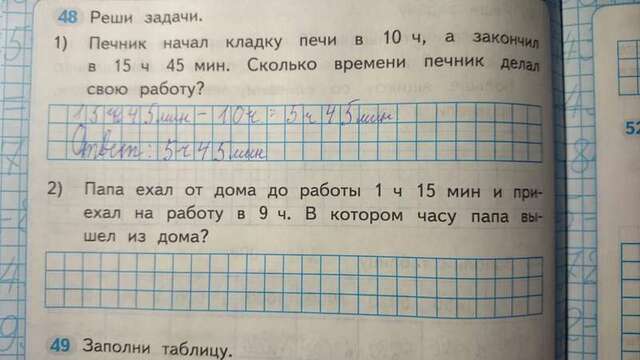 48 Реши задачи.
1) Печник начал кладку печи в 10 ч, а закончил
в 15 ч 45 мин. Сколько времени печник делал
свою работу?
15ч45мин-10ч=5ч45мин
Ответ: 5ч45мин
2) Папа ехал от дома до работы 1 ч 15 мин и при-
ехал на работу в 9 ч. В котором часу папа вы-
шел из дома?
49 Заполни таблицу.
52